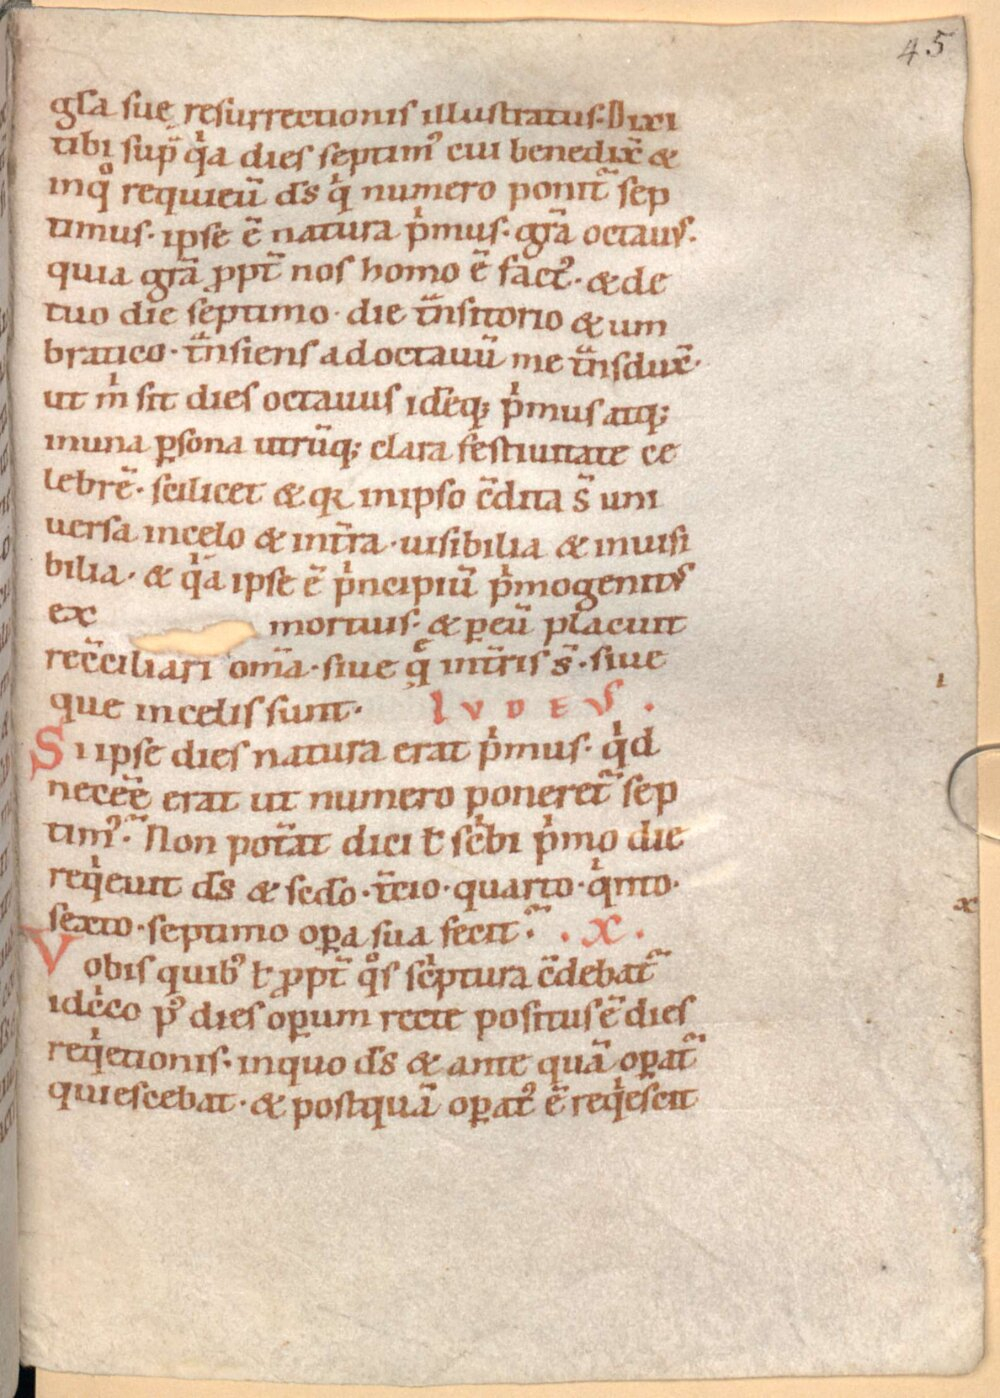 45
gl̃a sue resurrectionis illustratus. Dixi
tibi sup̃ qͥa dies septim᷒ cui benedix̃ &
inqͦ requieũ d̃s qͥ numero ponit̃ sep
timus. ipse ẽ natura pͥmus. gr̃a octauꝰ.
quia gr̃a ꝓpt̃ nos homo ẽ factꝰ. & de
tuo die septimo. die tͣnsitorio & um
bratico. tͣnsiens ad octauũ me tͣnsdux̃.
ut mͥ sit dies octauus idẽq; pͥmus atq;
in una ꝑsona utrũq; clara festiuitate ce
lebrẽ. scilicet & qꝛ in ipso c̃dita s̃ uni
uersa in celo & in tr̃a. uisibilia & inuisi
bilia. & qͥa ipse ẽ pͥncipiũ pͥmogenitꝰ
ex mortuis. & ꝑ eũ placuit
rec̃ciliari om̃a. siue q̨ͤ in tr̃is s̃. siue
que in celis sunt. IVDEVS.
Si ipse dies natura erat pͥmus. qͥd
necẽẽ erat ut numero poneret̃ sep
timꝰ. Non pot̃at dici ꝉ scͥbi pͥmo die
reqͥeuit d̃s & sc̃do. t̃cio. quarto. qͥnto.
sexto. septimo oꝑa sua fecit. .X.
Vobis quibꝰ ꝉ ꝓpt̃ qͦs scͥptura c̃debat̃
idcͥco pꝰ dies oꝑum recte positus ẽ dies
reqͥetionis. in quo d̃s & ante quã oꝑat̃
quiescebat. & postquã oꝑatꝰ ẽ reqͥescit